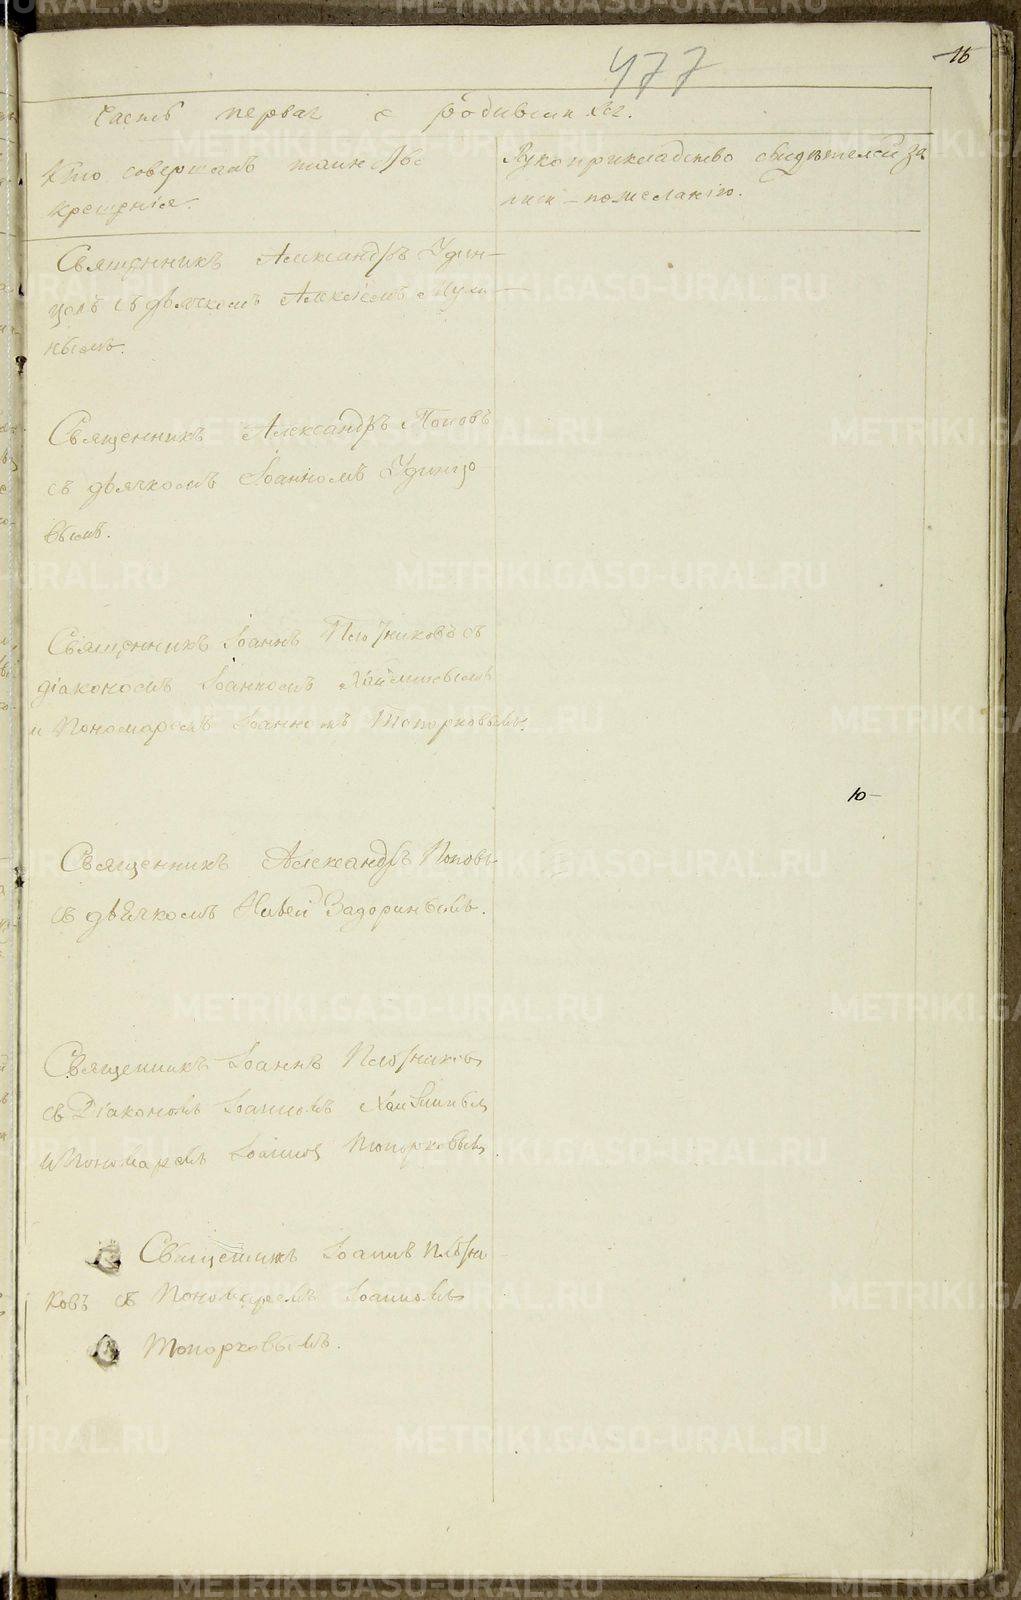 477
16
Часть первая о родившихся.
Кто совершалъ таинство
крещенія.
Рукоприкладство свидѣтелей за
писи по желанію.
Священникъ Александръ Удин-
цовъ съ дьячкомъ Алексіемъ
нымъ.
Священникъ Александръ Поповъ
съ дьячкомъ Іоанномъ Удинцо
вымъ.
Священникъ Іоаннъ Плотниковъ съ
діакономъ Іоанномъ
и Пономаремъ Іоанномъ Топорковымъ.
ю-
Священникъ Александръ Поповъ
съ дьячкомъ Задоринымъ.
Священникъ Іоаннъ Плотниковъ
съ Діакономъ Іоанномъ
и Пономаремъ Іоанномъ Топорковымъ.
Священникъ Іоаннъ Плотни
ковъ съ Пономаремъ Іоанномъ
Топорковымъ.
METRIKI.GASO-URAL.RU